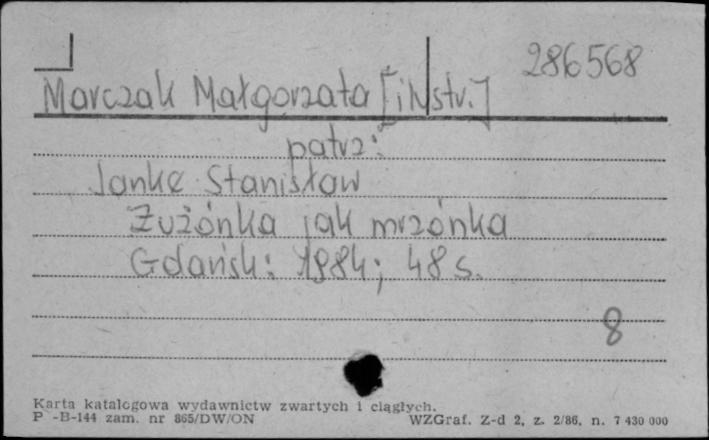 286568
Marczak Małgorzata [ilustr.]
patrz:
Janke Stanisław
Żużónka jak mrzónka
Gdańsk: 1984; 48 s.
8
Karta katalogowa wydawnictw zwartych i ciągłych.
P-B-144 zam. nr 865/DW/ON WZGraf. Z-d 2, z. 2/86, n. 7 430 000